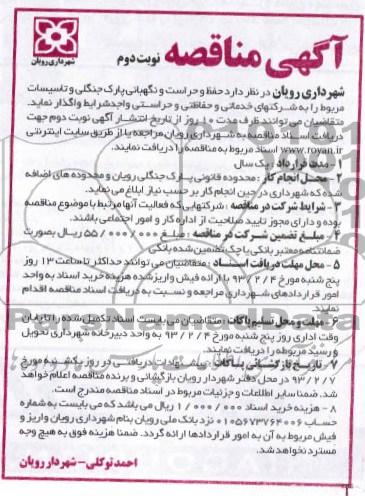 آگهی مناقصه نوبت دوم
شهرداری رویان
شهرداری رویان در نظر دارد حفظ و حراست و نگهبانی پارک جنگلی و تاسیسات
مربوط را به شرکتهای خدماتی و حفاظتی و حراستی واجدشرایط واگذار نماید.
متقاضیان می توانند ظرف مدت ۱۰ روز از تاریخ انتشار آگهی نوبت دوم جهت
دریافت اسناد مناقصه به شهرداری رویان مراجعه یا از طریق سایت اینترنتی
www.royan.ir اسناد مربوط به مناقصه را دریافت نمایند.
۱- مدت قرارداد : یک سال
۲- محل انجام کار : محدوده قانونی پارک جنگلی رویان و محدوده های اضافه
شده که شهرداری در حین انجام کار بر حسب نیاز ابلاغ می نماید.
۳- شرایط شرکت در مناقصه : شرکتهایی که فعالیت آنها مرتبط با موضوع مناقصه
بوده و دارای مجوز تایید صلاحیت از اداره کار و امور اجتماعی باشند.
۴- مبلغ تضمین شرکت در مناقصه : مبلغ ۵۵/۰۰۰/۰۰۰ ریال بصورت
ضمانتنامه معتبر بانکی یا چک تضمین شده بانکی
۵- محل مهلت دریافت اسناد : متقاضیان می توانند حداکثر تا ساعت ۱۳ روز
پنج شنبه مورخ ۹۳/۲/۴ با ارائه فیش واریز شده هزینه خرید اسناد به واحد
امور قراردادهای شهرداری مراجعه و نسبت به دریافت اسناد مناقصه اقدام
نمایند.
۶- مهلت و محل تسلیم پاکات : متقاضیان می بایست اسناد تکمیل شده را تا پایان
وقت اداری روز پنج شنبه مورخ ۹۳/۲/۴ به واحد دبیرخانه شهرداری تحویل
و رسید مربوطه را دریافت نمایند.
۷- تاریخ بازگشایی پاکات : پیشنهادات دریافتی در روز یکشنبه مورخ
۹۳/۲/۷ در محل دفتر شهردار رویان بازگشائی و برنده مناقصه اعلام خواهد
شد. ضمنا سایر اطلاعات و جزئیات مربوط در اسناد مناقصه مندرج است.
۸- هزینه خرید اسناد ۱/۰۰۰/۰۰۰ ریال می باشد که می بایست به شماره
حساب ۰۱۰۵۶۷۳۷۶۴۰۰۶ نزد بانک ملی رویان بنام شهرداری رویان واریز و
فیش مربوط به آن به امور قراردادها ارائه گردد. ضمنا هزینه فوق به هیچ وجه
مسترد نخواهد شد.
احمد توکلی - شهردار رویان